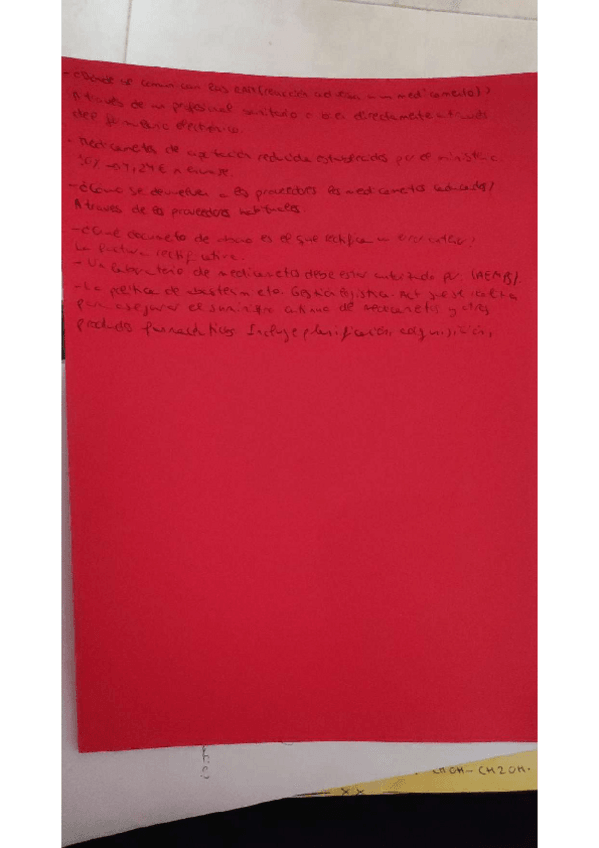 -¿Donde se comunican las RAM (reacción adversa a un medicamento)?
A través de un profesional sanitario o bien directamente a través
del formulario electrónico.
- Medicamentos de aportación reducida establecidos por el ministerio.
10% → 4,24€ n envase.
-¿Como se devuelven a los proveedores los medicamentos caducados?
A traves de los proveedores habituales.
-¿Qué documento de abono es el que rectifica un error anterior?
La factura rectificativa.
- Un laboratorio de medicamentos debe estar autorizado por: (AEMPS).
- La política de abastecimiento. Gestión logística. Act que se realiza
para asegurar el suministro continuo de medicamentos y otros
productos farmacéuticos. Incluye planificación, adquisición,
CHOH-CH2OH.